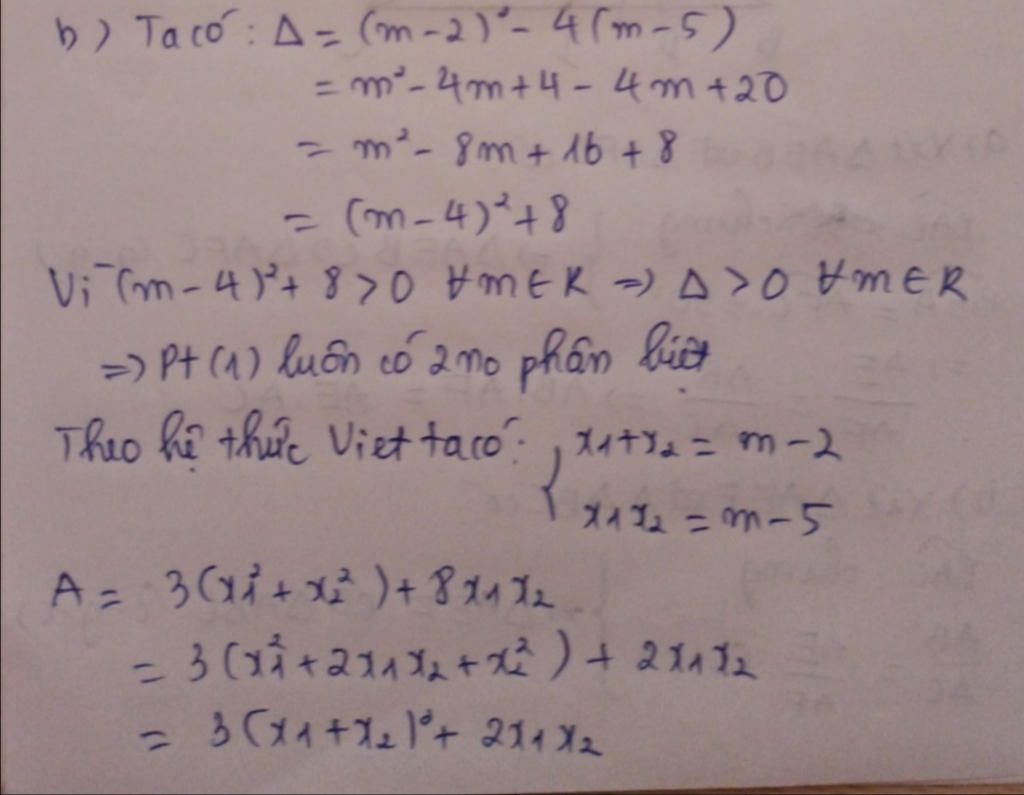 b) Ta có: Δ = (m-2)² - 4(m-5)
= m² - 4m + 4 - 4m + 20
= m² - 8m + 16 + 8
= (m-4)² + 8
Vì (m-4)² + 8 > 0 ∀m∈R => Δ > 0 ∀m∈R
=> Pt (1) luôn có 2 no phân biệt
Theo hệ thức Viet ta có: { x₁+x₂ = m-2
x₁x₂ = m-5
A = 3(x₁² + x₂²) + 8x₁x₂
= 3(x₁² + 2x₁x₂ + x₂²) + 2x₁x₂
= 3(x₁+x₂)² + 2x₁x₂